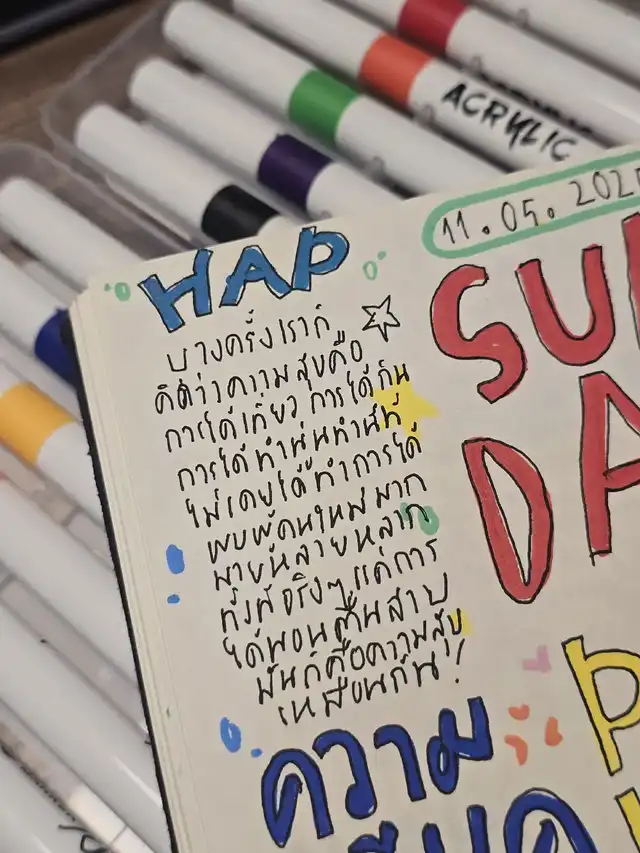 ACRYLIC
11.05.202
HAP
SU
DA
บางครั้งเราก็
คิดว่าความสุขคือ
การได้เที่ยว การได้กิน
การได้ทำนั่นทำนี่ที่
ไม่เคยได้ทำการได้
พบผู้คนใหม่มาก
มายหลายหลาก
ทั้งที่จริงๆแค่การ
ได้นอนตื่นสาย
มันก็คือความสุข
เหมือนกัน!
ความ
P